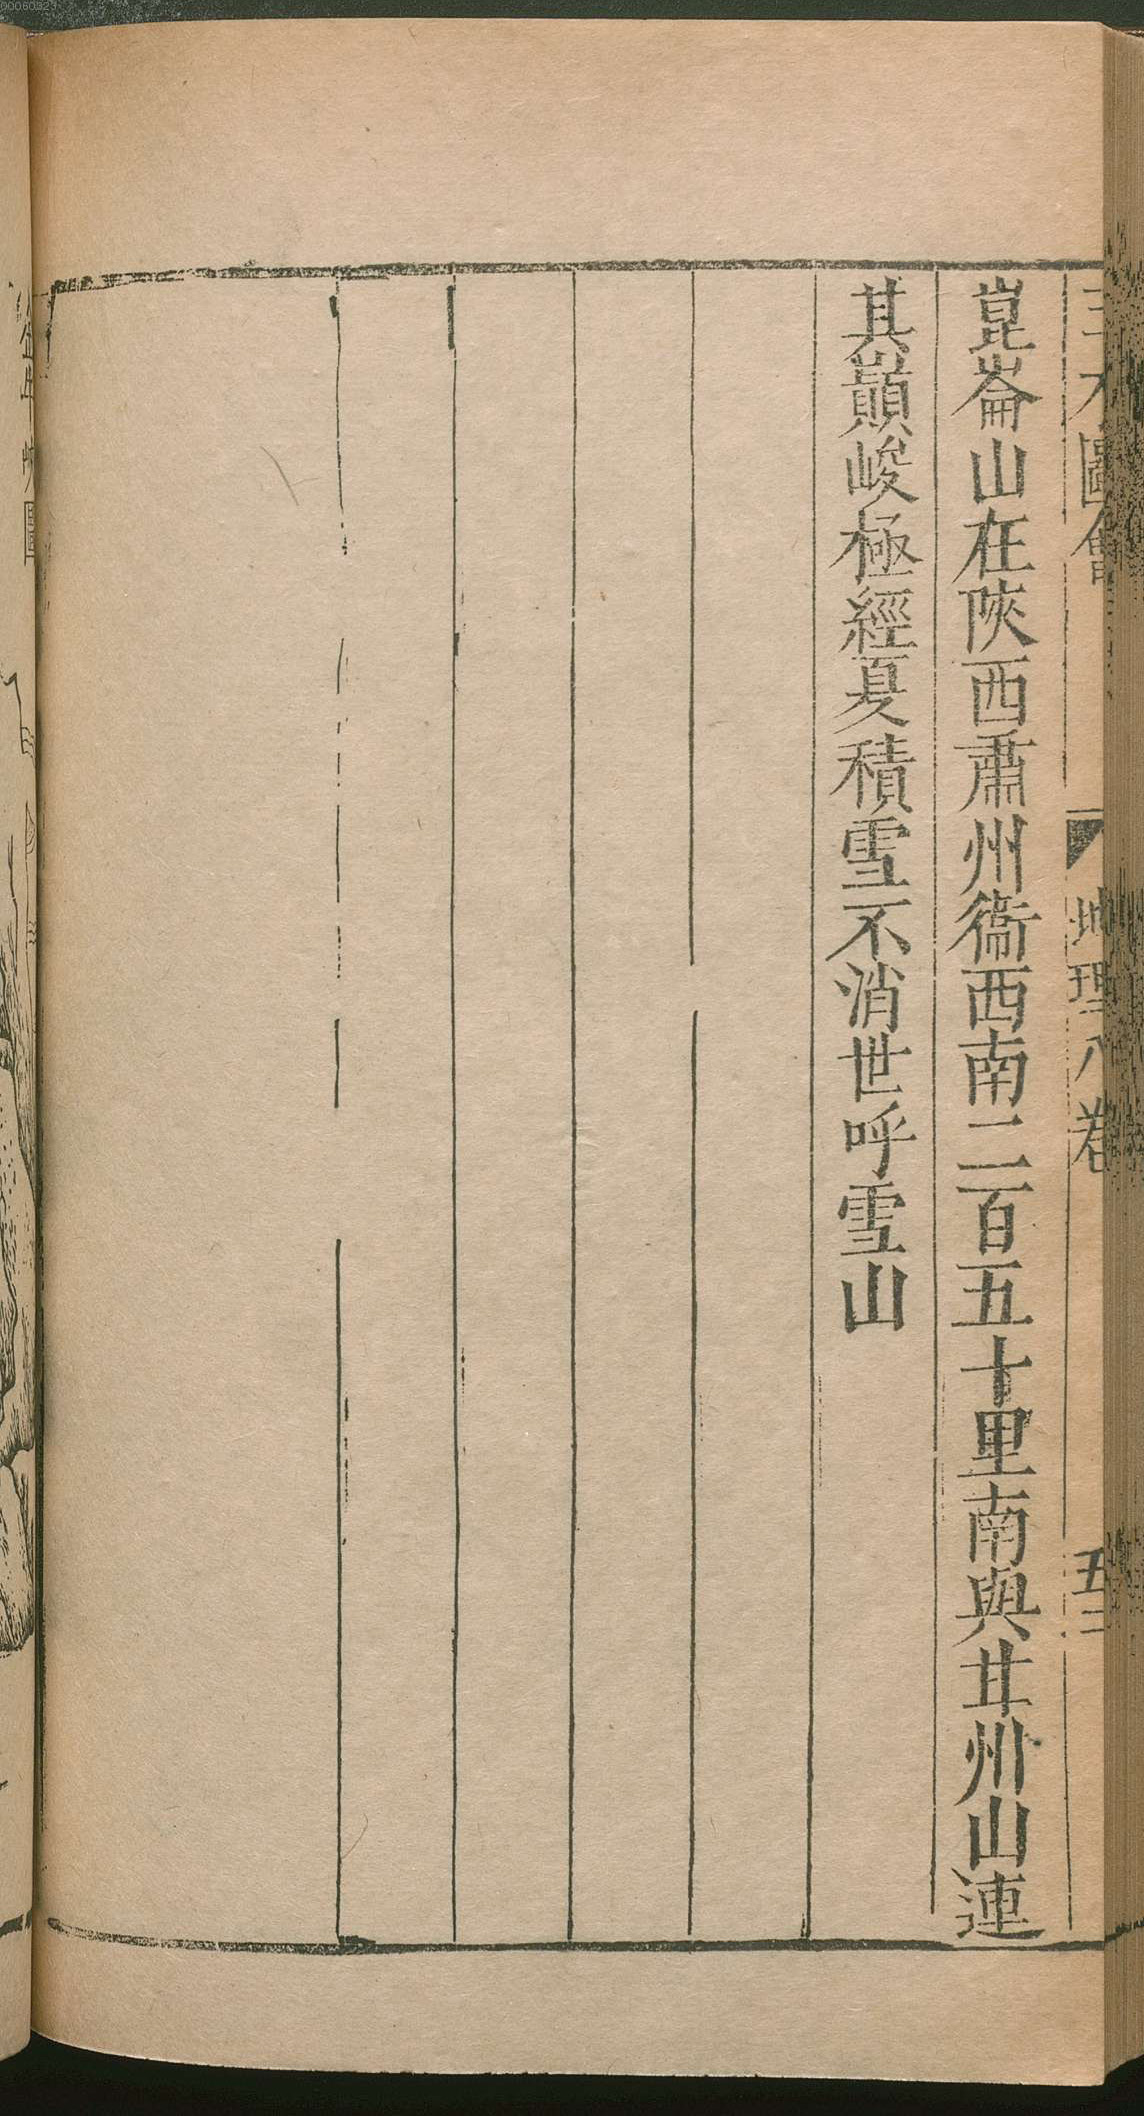 三才圖會 地理八卷 五二
崑崙山在陜西肅州衞西南二百五十里南與甘州山連
其巔峻極經夏積雪不消世呼雪山
00060023